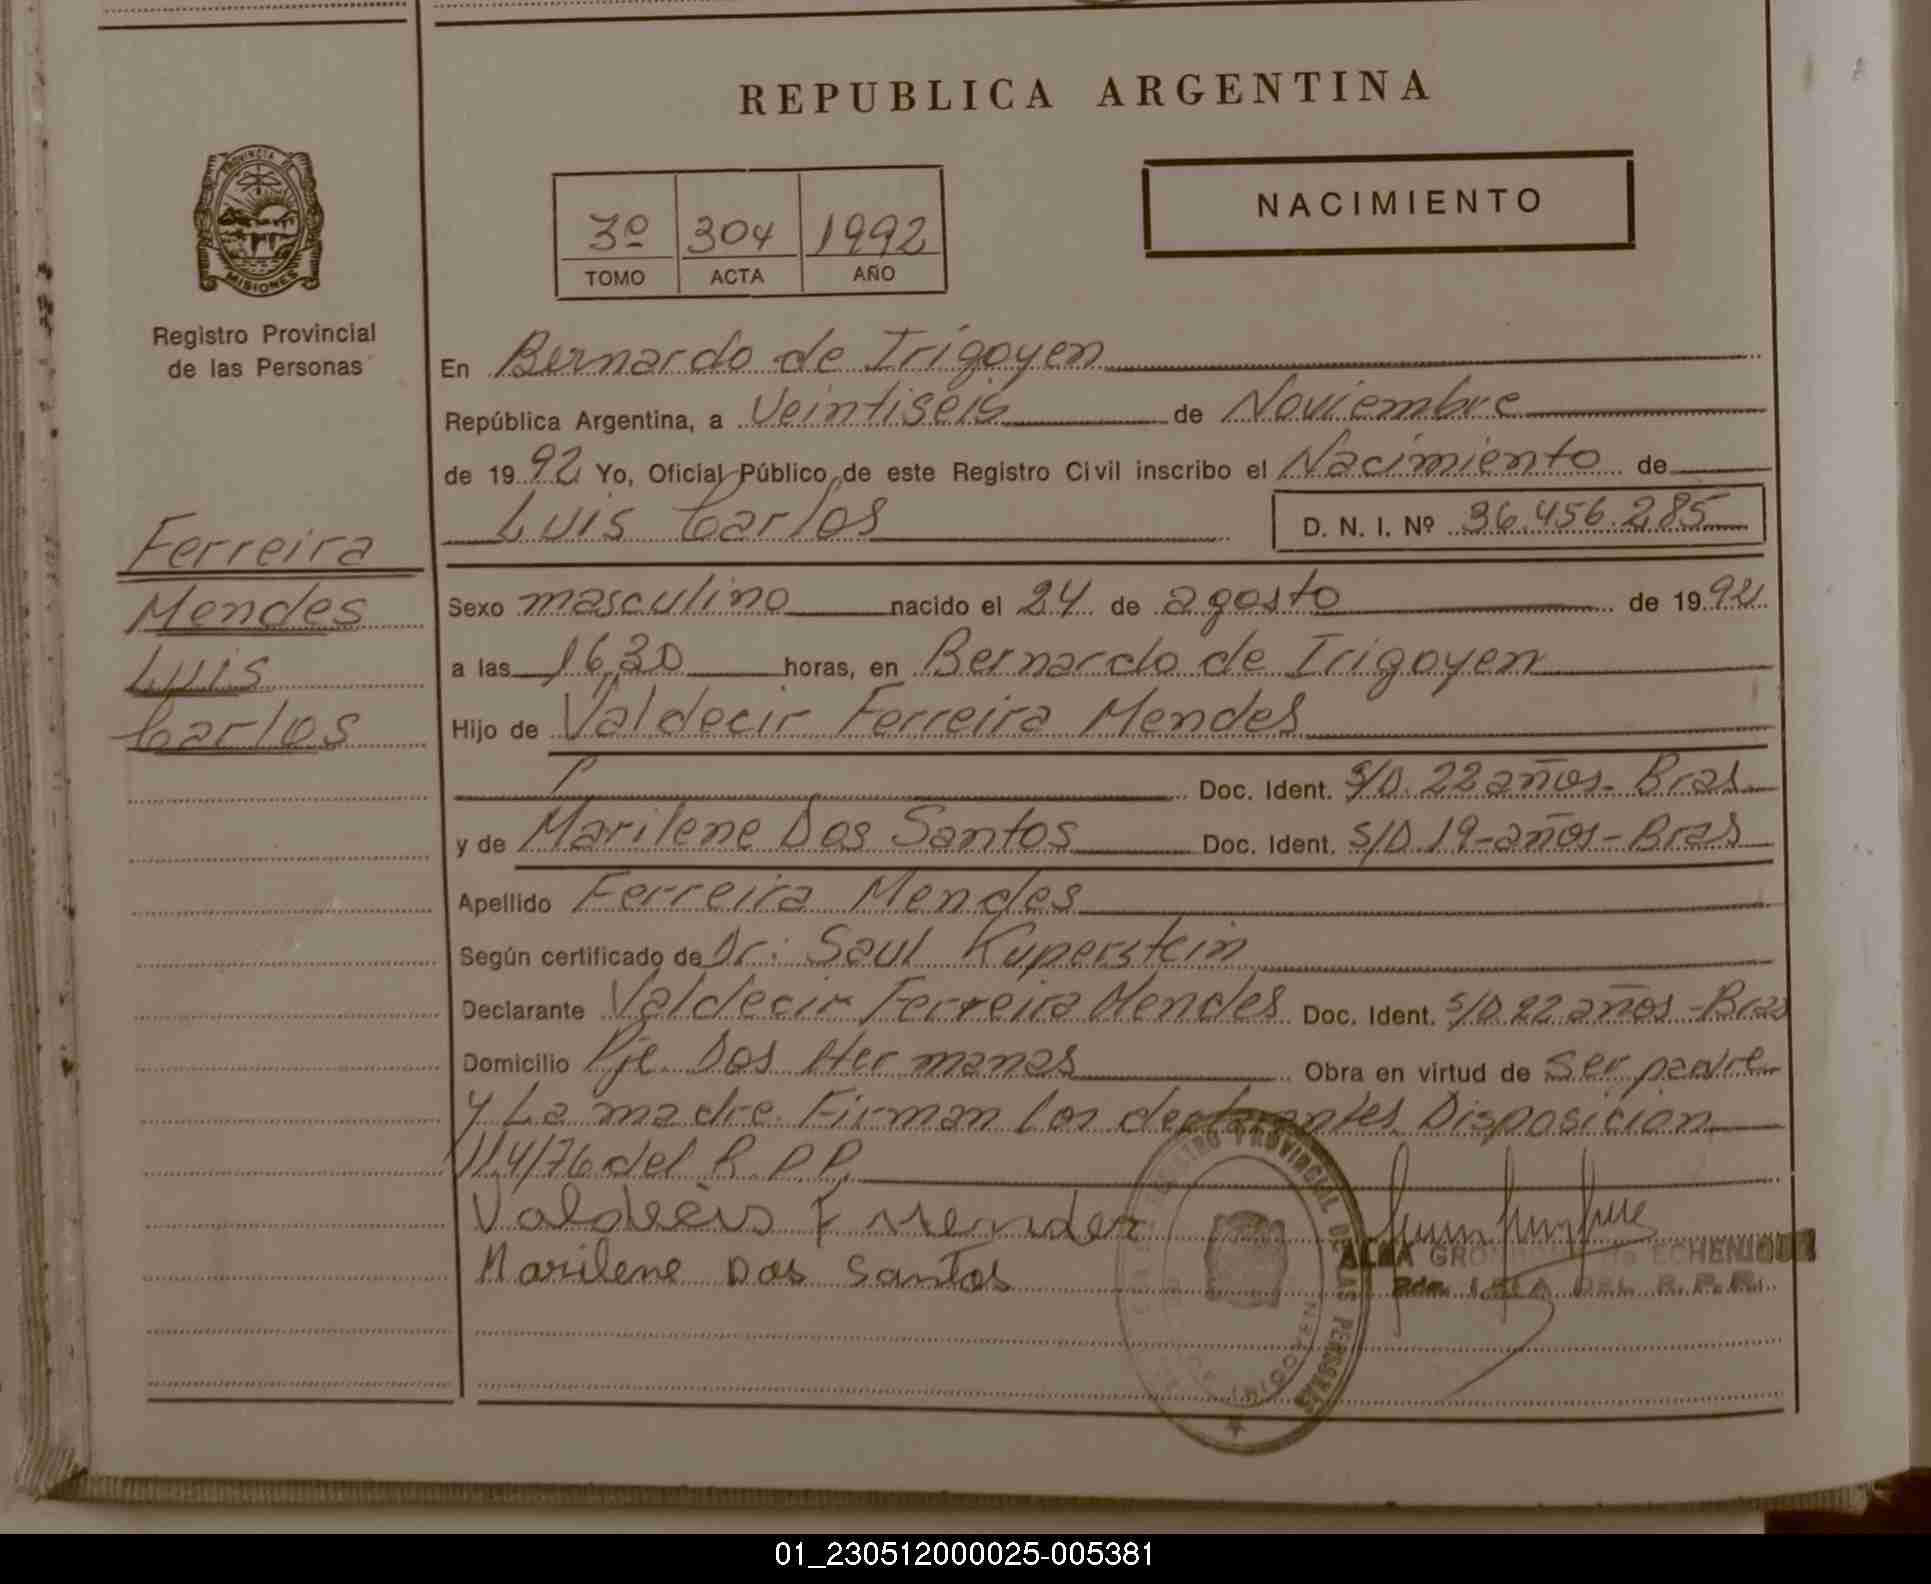 REPUBLICA ARGENTINA
PROVINCIA DE MISIONES
Registro Provincial
de las Personas
3º 304 1992
TOMO ACTA AÑO
NACIMIENTO
Ferreira
Mendes
Luis
Carlos
En Bernardo de Irigoyen
República Argentina, a Veintiseis de Noviembre
de 1992 Yo, Oficial Público de este Registro Civil inscribo el Nacimiento de
Luis Carlos D. N. I. Nº 36.456.285
Sexo masculino nacido el 24 de agosto de 1992
a las 16,30 horas, en Bernardo de Irigoyen
Hijo de Valdecir Ferreira Mendes
Doc. Ident. S/D. 22 años - Bras
y de Marilene Dos Santos Doc. Ident. S/D 19-años-Bras
Apellido Ferreira Mendes
Según certificado de Dr: Saul Kuperstein
Declarante Valdecir Ferreira Mendes Doc. Ident. S/D 22 años -Bras
Domicilio Pje. Dos Hermanas Obra en virtud de ser padre
y La madre. Firman los declarantes Disposición
114/76 del R.P.P.
Valdecis F Mendes
Marilene Dos Santos
REGISTRO PROVINCIAL DE LAS PERSONAS
ALBA ECHENIQUE
DEL R.P.P.
01_230512000025-005381